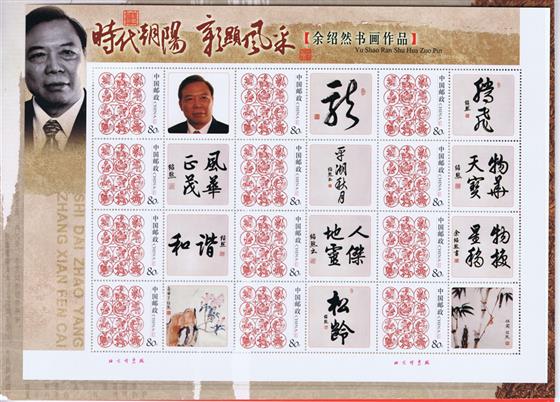 時代朝陽 彰顯風采
【余绍然书画作品】
Yu Shao Ran Shu Hua Zuo Pin
SHI DAI ZHAO YANG
ZHANG XIAN FEI CAI
中国邮政 CHINA 80分
中国邮政 CHINA 80分
龍
中国邮政 CHINA 80分
腾飛
中国邮政 CHINA 80分
風華正茂
中国邮政 CHINA 80分
平湖秋月
中国邮政 CHINA 80分
物華天寶
中国邮政 CHINA 80分
和谐
中国邮政 CHINA 80分
人傑地靈
中国邮政 CHINA 80分
中国邮政 CHINA 80分
中国邮政 CHINA 80分
松龄
中国邮政 CHINA 80分